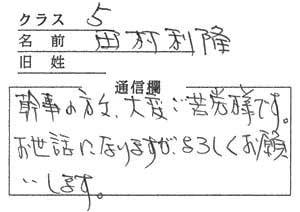 クラス 5
名前 田村利隆
旧姓
通信欄
幹事の方、大変ご苦労様です。
お世話になりますが、よろしくお願
いします。